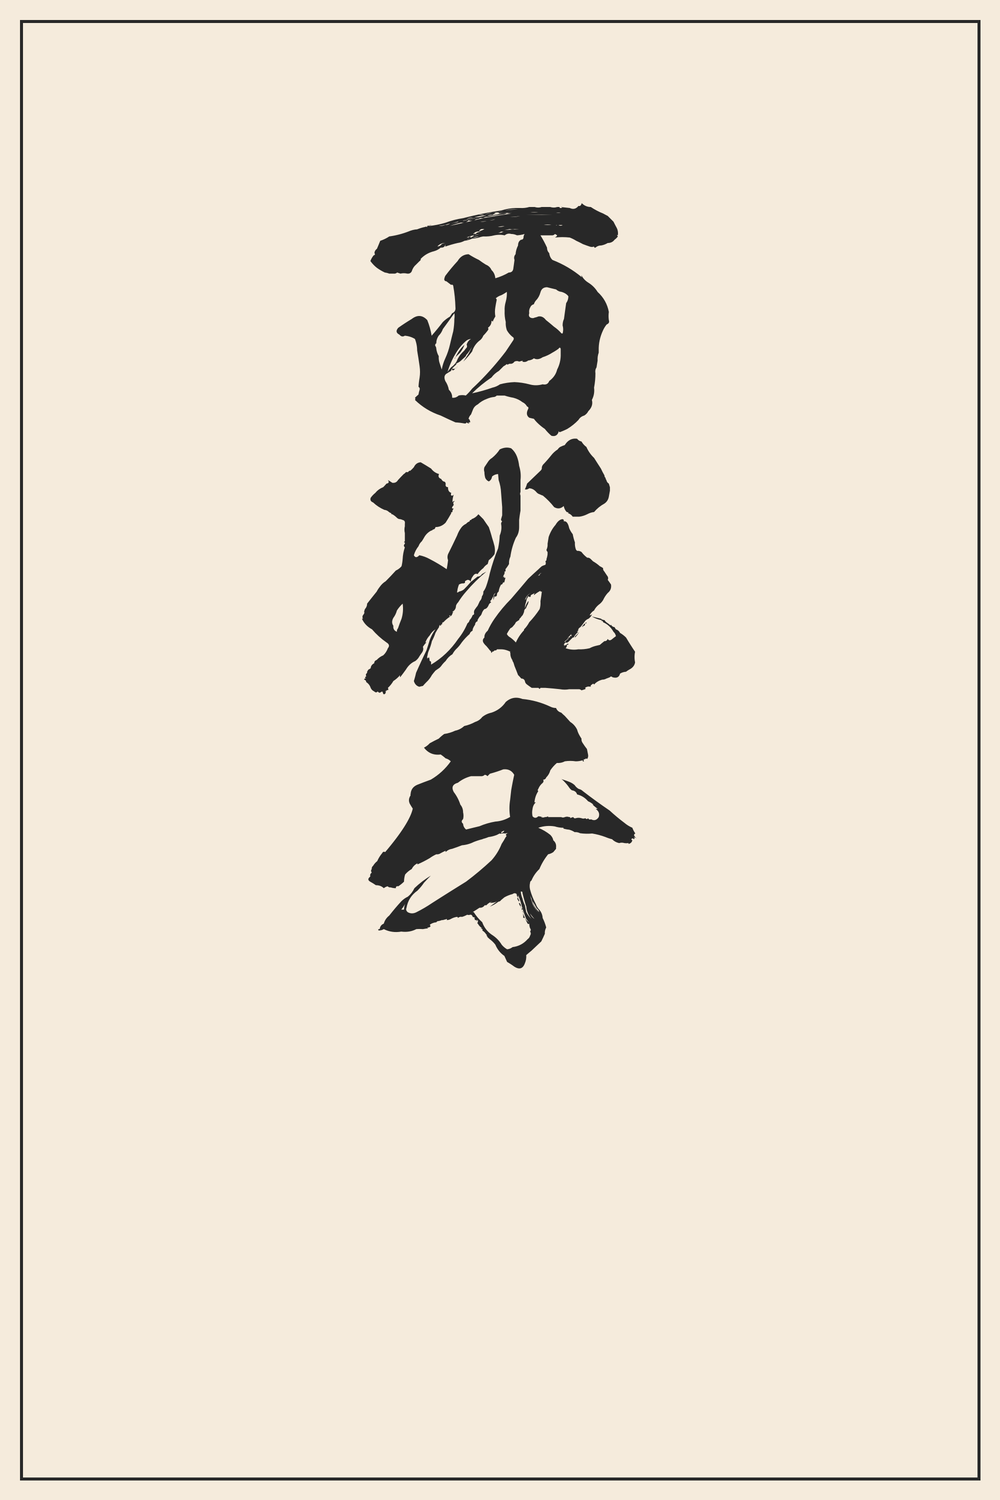 西班牙